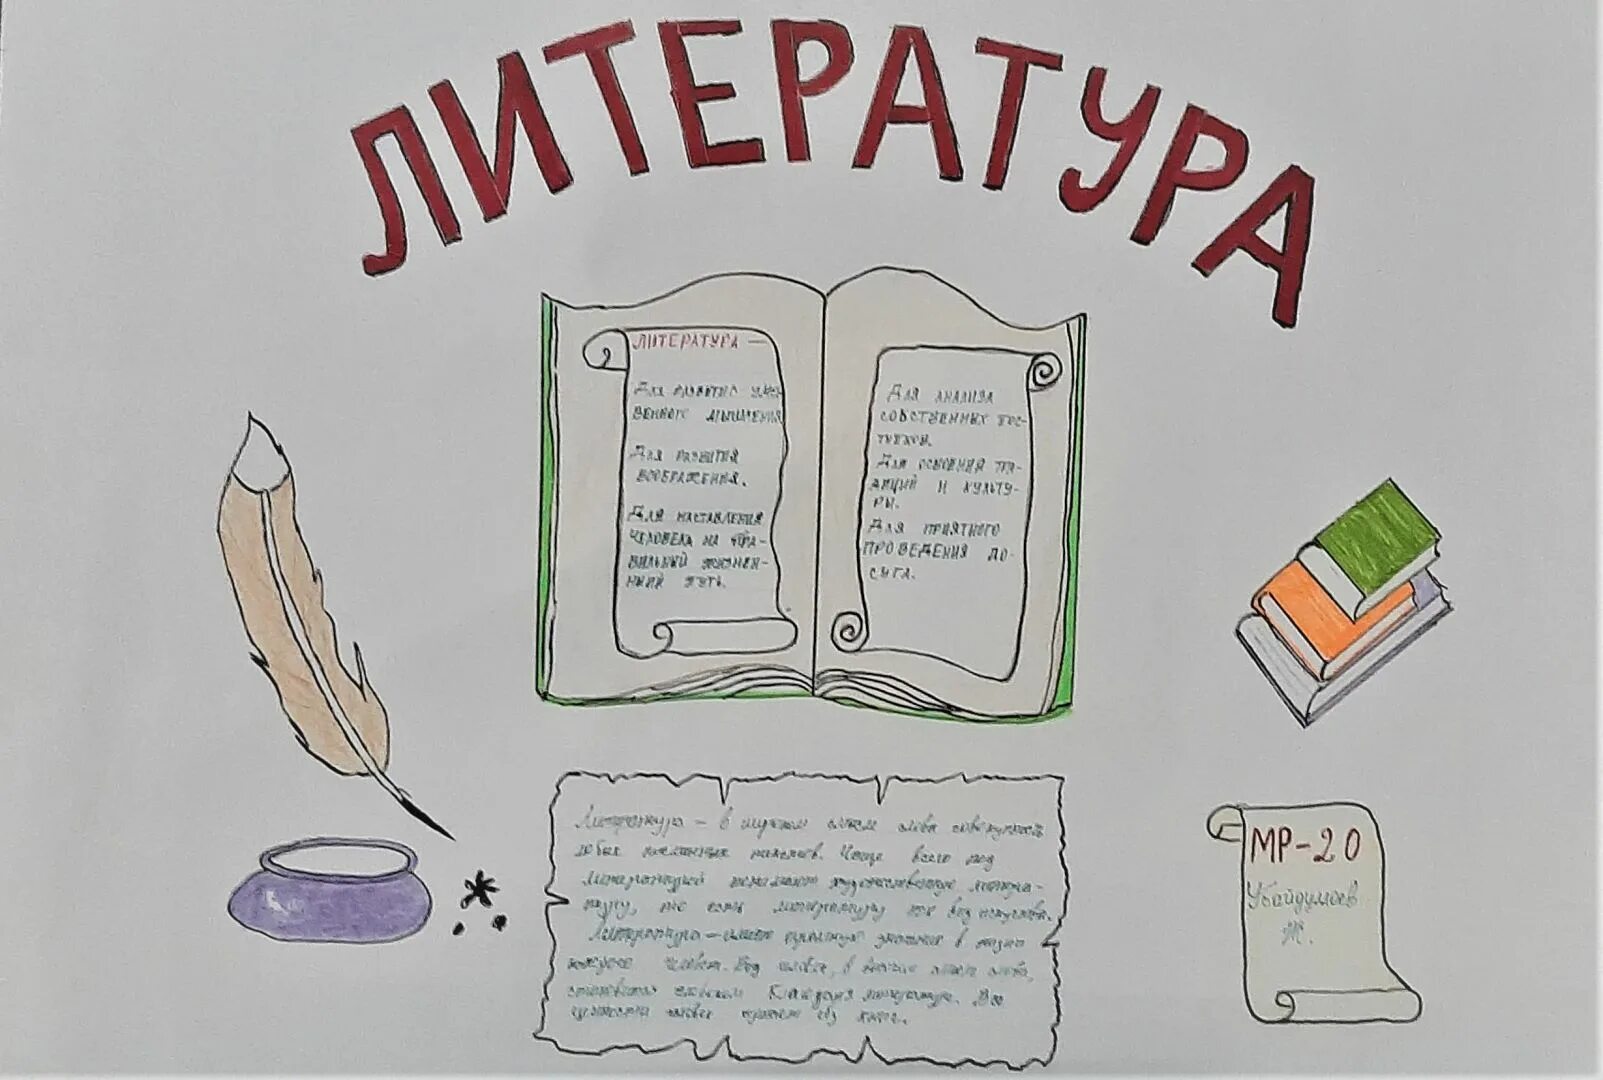 ЛИТЕРАТУРА
ЛИТЕРАТУРА —
Для
венного мышления
Для развития
воображения.
Для наставления
человека на пра-
вильный жизнен-
ный путь.
Для анализа
собственных пос-
тупков.
Для
и культу-
ры.
Для приятного
проведения до-
суга.
Литература – в широком смысле слова совокупность
любых письменных текстов. Чаще всего под
литературой понимают художественную литера-
туру, то есть литературу как вид искусства.
Литература – имеет значение в жизни
человека. Ведь человек, в смысле слова,
становится человеком благодаря литературе. Все
ценности человек черпает из книг.
МР-20
Убайдулоев
Ж.